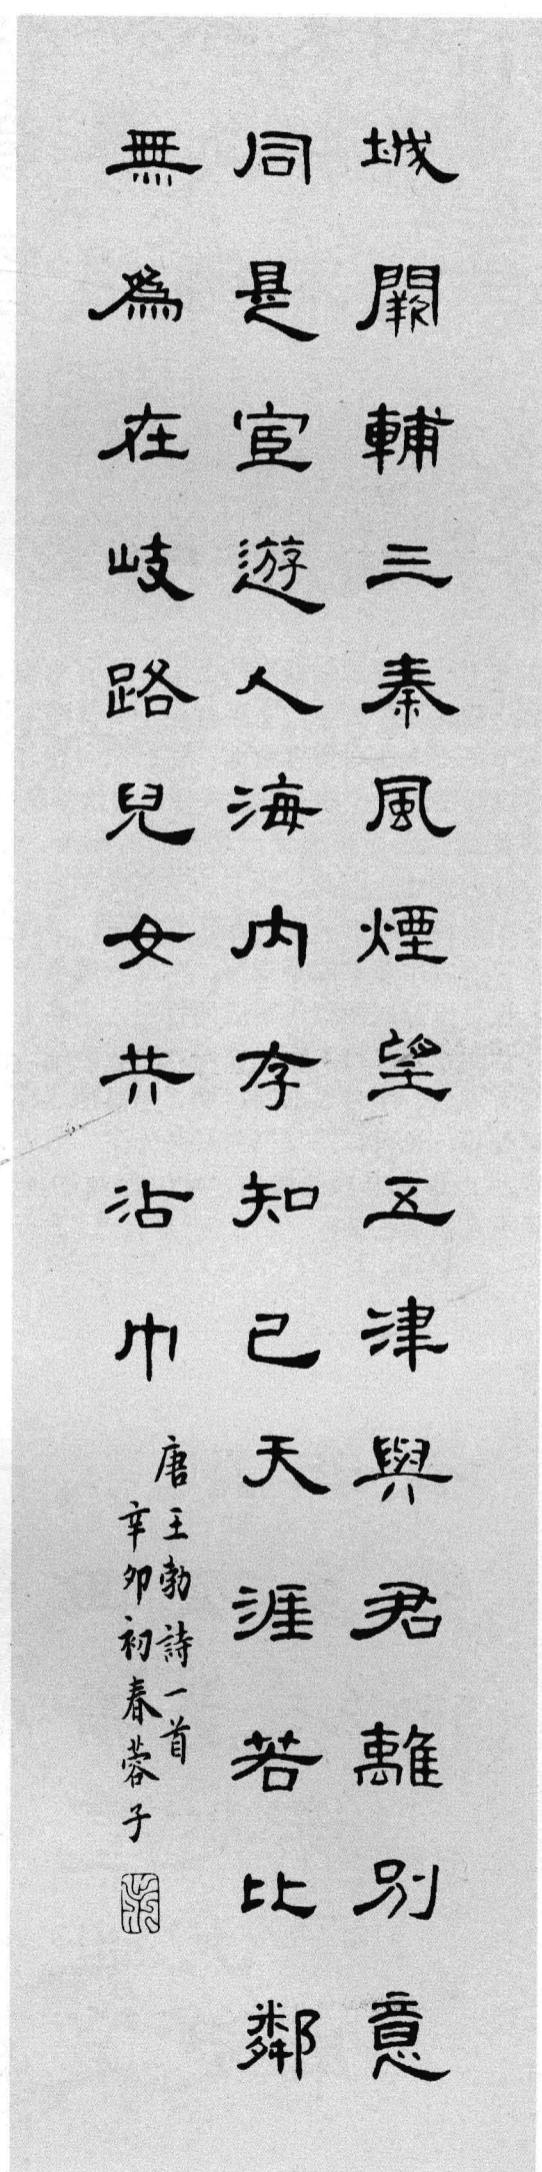 城闕輔三秦風煙望五津與君離別意
同是宦遊人海內存知己天涯若比鄰
無為在岐路兒女共沾巾
唐王勃詩一首
辛卯初春蓉子